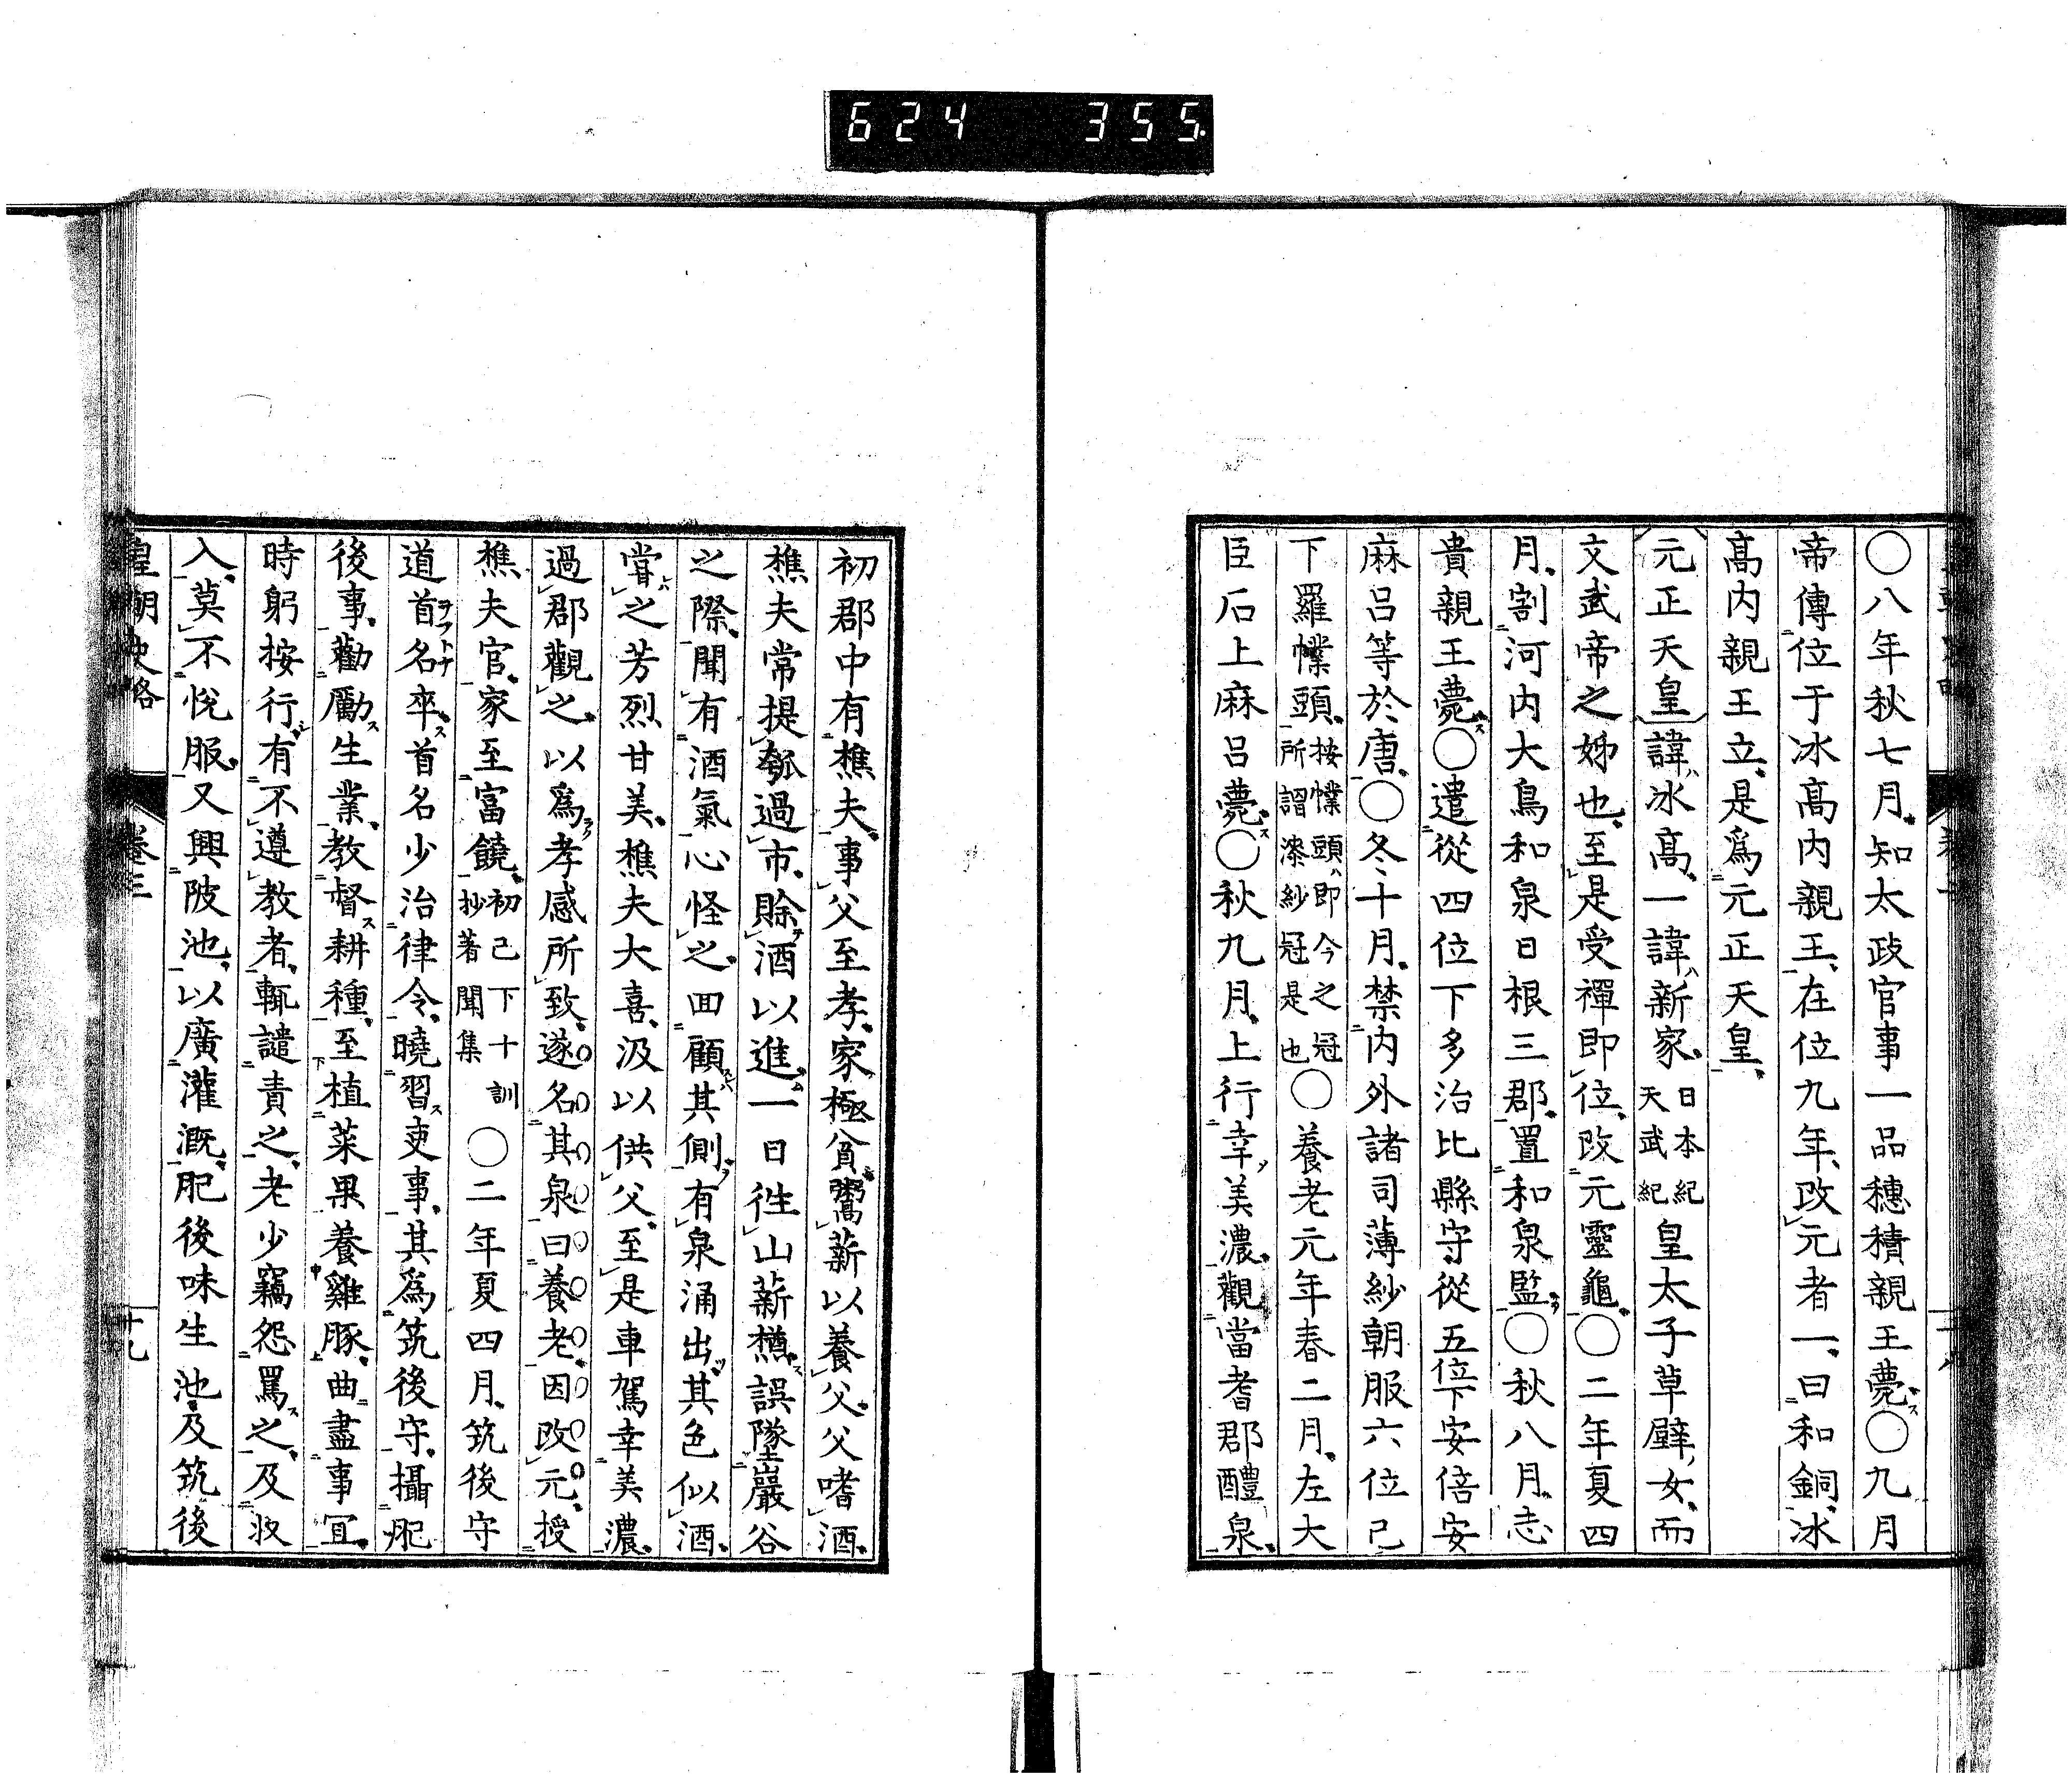 624 355
〇八年秋七月知太政官事一品穗積親王薨〇九月
帝傳位于冰高內親王在位九年改元者一曰和銅冰
高內親王立是爲元正天皇
元正天皇諱冰高一諱新家日本紀天武紀皇太子草壁女而
文武帝之姊也至是受禪即位改元靈龜〇二年夏四
月割河內大鳥和泉日根三郡置和泉監〇秋八月志
貴親王薨〇遣從四位下多治比縣守從五位下安倍安
麻呂等於唐〇冬十月禁內外諸司薄紗朝服六位已
下羅幞頭按幞頭即今之冠所謂漆紗冠是也〇養老元年春二月左大
臣石上麻呂薨〇秋九月上行幸美濃觀當耆郡醴泉
初郡中有樵夫事父至孝家極貧鬻薪以養父父嗜酒
樵夫常提瓠過市賒酒以進一日徃山薪樵誤墜巖谷
之際聞有酒氣心怪之回顧其側有泉涌出其色似酒
嘗之芳烈甘美樵夫大喜汲以供父至是車駕幸美濃
過郡觀之以爲孝感所致遂名其泉曰養老因改元授
樵夫官家至富饒初已下十訓抄著聞集〇二年夏四月筑後守
道首名卒首名少治律令曉習吏事其爲筑後守攝肥
後事勸勵生業教督耕種至植菜果養雞豚曲盡事宜
時躬按行有不遵教者輒譴責之老少竊怨罵之及收
入莫不悅服又興陂池以廣灌漑肥後味生池及筑後
皇朝史略 卷三 十九